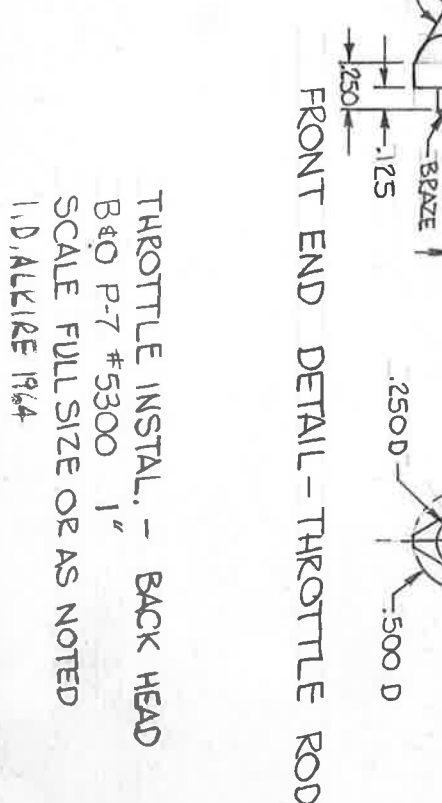 .250
.125
BRAZE
.250 D
.500 D
FRONT END DETAIL - THROTTLE ROD
THROTTLE INSTAL. - BACK HEAD
B&O P-7 #5300 1"
SCALE FULL SIZE OR AS NOTED
I.D. ALKIRE 1964